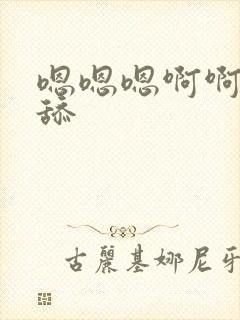 嗯嗯嗯啊啊
舔
古麗基娜尼牙